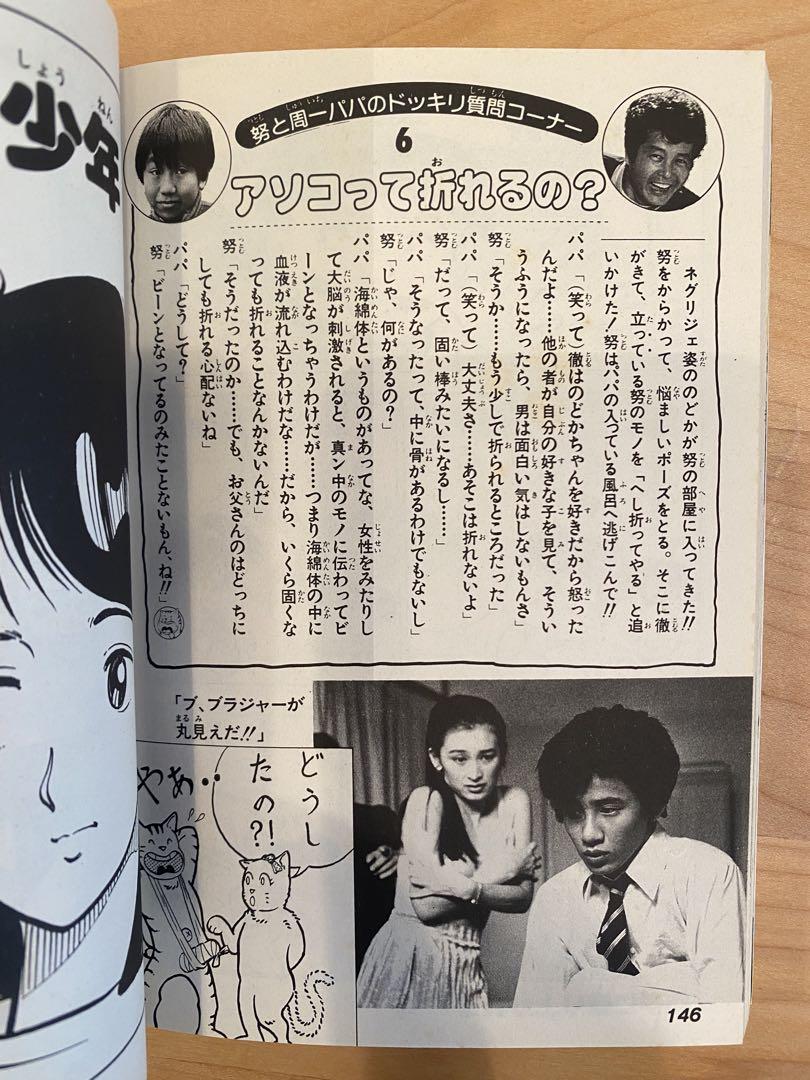 少年
しょうねん
努と周一パパのドッキリ質問コーナー
6
アソコって折れるの?
ネグリジェ姿ののどかが努の部屋に入ってきた!!
努をからかって、悩ましいポーズをとる。そこに徹
がきて、立っている努のモノを「へし折ってやる」と追
いかけた!努はパパの入っている風呂へ逃げこんで!!
パパ「(笑って)徹はのどかちゃんを好きだから怒った
んだよ……他の者が自分の好きな子を見て、そうい
うふうになったら、男は面白い気はしないもんさ」
努「そうか……もう少しで折られるところだった」
パパ「(笑って)大丈夫さ……あそこは折れないよ」
努「だって、固い棒みたいになるし……」
パパ「そうなったって、中に骨があるわけでもないし」
努「じゃ、何があるの?」
パパ「海綿体というものがあってな、女性をみたりし
て大脳が刺激されると、真ン中のモノに伝わってビ
ーンとなっちゃうわけだが……つまり海綿体の中に
血液が流れ込むわけだな……だから、いくら固くな
っても折れることなんかないんだ」
努「そうだったのか……でも、お父さんのはどっちに
しても折れる心配ないね」
パパ「どうして?」
努「ビーンとなってるのみたことないもん、ね!!」
「ブ、ブラジャーが
丸見えだ!!」
どうし
たの?!
やぁ・・
146